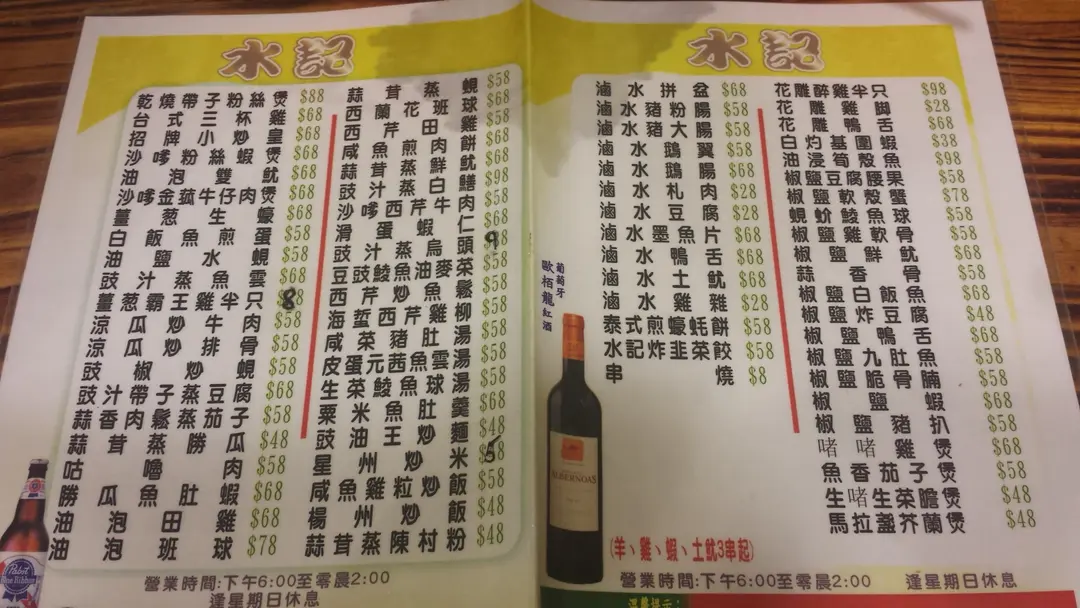 水記
乾燒帶子粉絲煲 $88
台式三杯雞 $68
招牌小炒皇 $68
沙嗲粉絲蝦煲 $68
油泡雙魷 $68
沙嗲金菰牛仔肉煲 $68
薑葱生蠔 $68
白飯魚煎蛋 $58
油鹽水蜆 $58
豉汁蒸魚雲 $68
薑葱霸王雞半只
涼瓜炒牛肉 $58
涼瓜炒排骨 $58
豉椒炒蜆 $58
豉汁帶子蒸豆腐 $68
蒜香肉鬆蒸茄子 $58
蒜茸蒸勝瓜 $48
咕嚕肉 $58
勝瓜魚肚蝦 $68
油泡田雞 $68
油泡班球 $78
蒜茸蒸蜆 $58
西蘭花班球
西芹田雞
咸魚煎肉餅 $58
豉汁蒸鮮魷
蒜茸蒸白鱔 $98
沙嗲西芹牛肉 $58
滑蛋蝦仁 $58
豉汁蒸烏頭
豆豉鯪魚油麥菜 $58
西芹炒魚鬆 $58
海蜇西芹雞柳 $58
咸菜豬肚湯 $58
皮蛋元茜魚雲湯 $58
生菜鯪魚球湯 $58
粟米魚肚羹 $68
豉油王炒麵 $48
星州炒米
咸魚雞粒炒飯 $58
楊州炒飯 $48
蒜茸蒸陳村粉 $48
營業時間:下午6:00至零晨2:00
逢星期日休息
水記
滷水拼盆 $68
滷水豬粉腸 $58
滷水豬大腸 $58
滷水鵝翼 $58
滷水鵝腸 $68
滷水札肉 $28
滷水豆腐 $28
滷水墨魚片 $68
滷水鴨舌 $68
滷水土魷 $68
滷水雞雜 $28
泰式煎蠔蚝餅 $58
水記炸韭菜餃 $58
串燒 $8
(羊、雞、蝦、土魷3串起)
葡萄牙
歐栢龍紅酒
花雕醉雞半只 $98
花雕雞腳 $28
花雕鴨舌 $68
白灼基圍蝦
油浸筍殼魚 $98
椒鹽豆腐腰果 $58
椒鹽軟殼蟹 $78
蜆蚧鯪魚球 $58
椒鹽雞軟骨 $58
椒鹽鮮魷 $58
蒜香骨 $58
椒鹽白飯魚 $68
椒鹽炸豆腐 $48
椒鹽鴨舌 $68
椒鹽九肚魚 $58
椒鹽脆骨腩 $58
椒鹽蝦 $68
椒鹽豬扒 $58
啫啫雞煲 $68
魚香茄子煲 $58
生啫生菜膽煲 $48
馬拉盞芥蘭煲 $48
營業時間:下午6:00至零晨2:00
逢星期日休息
溫馨提示:
ALBERNOAS
Pabst
Blue Ribbon